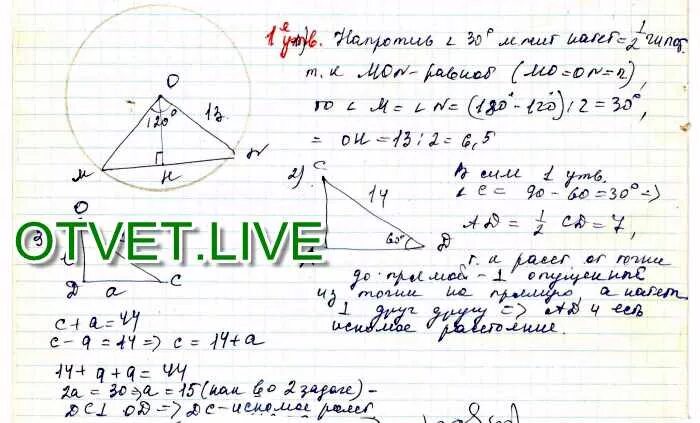 1е утв. Напротив ∠ 30° лежит катет = 1/2 гипот.
т.к MON-равноб (MO=ON=r),
O
120°
13
то ∠ M = ∠ N = (180° - 120°) : 2 = 30°,
= OH = 13 : 2 = 6,5
M
H
N
2)
C
14
60°
D
В силу 1 утв.
∠ C = 90 - 60 = 30° =>
AD = 1/2 CD = 7,
OTVET.LIVE
3
O
D
a
C
т. к расст от точки
до прямой - ⊥ опущенный
из точки на прямую, а катеты
⊥ друг другу => AD и есть
искомое расстояние.
c + a = 44
c - a = 14 => c = 14 + a
14 + a + a = 44
2a = 30 => a = 15 (как во 2 задаче) -
DC ⊥ OD => DC - искомое расст